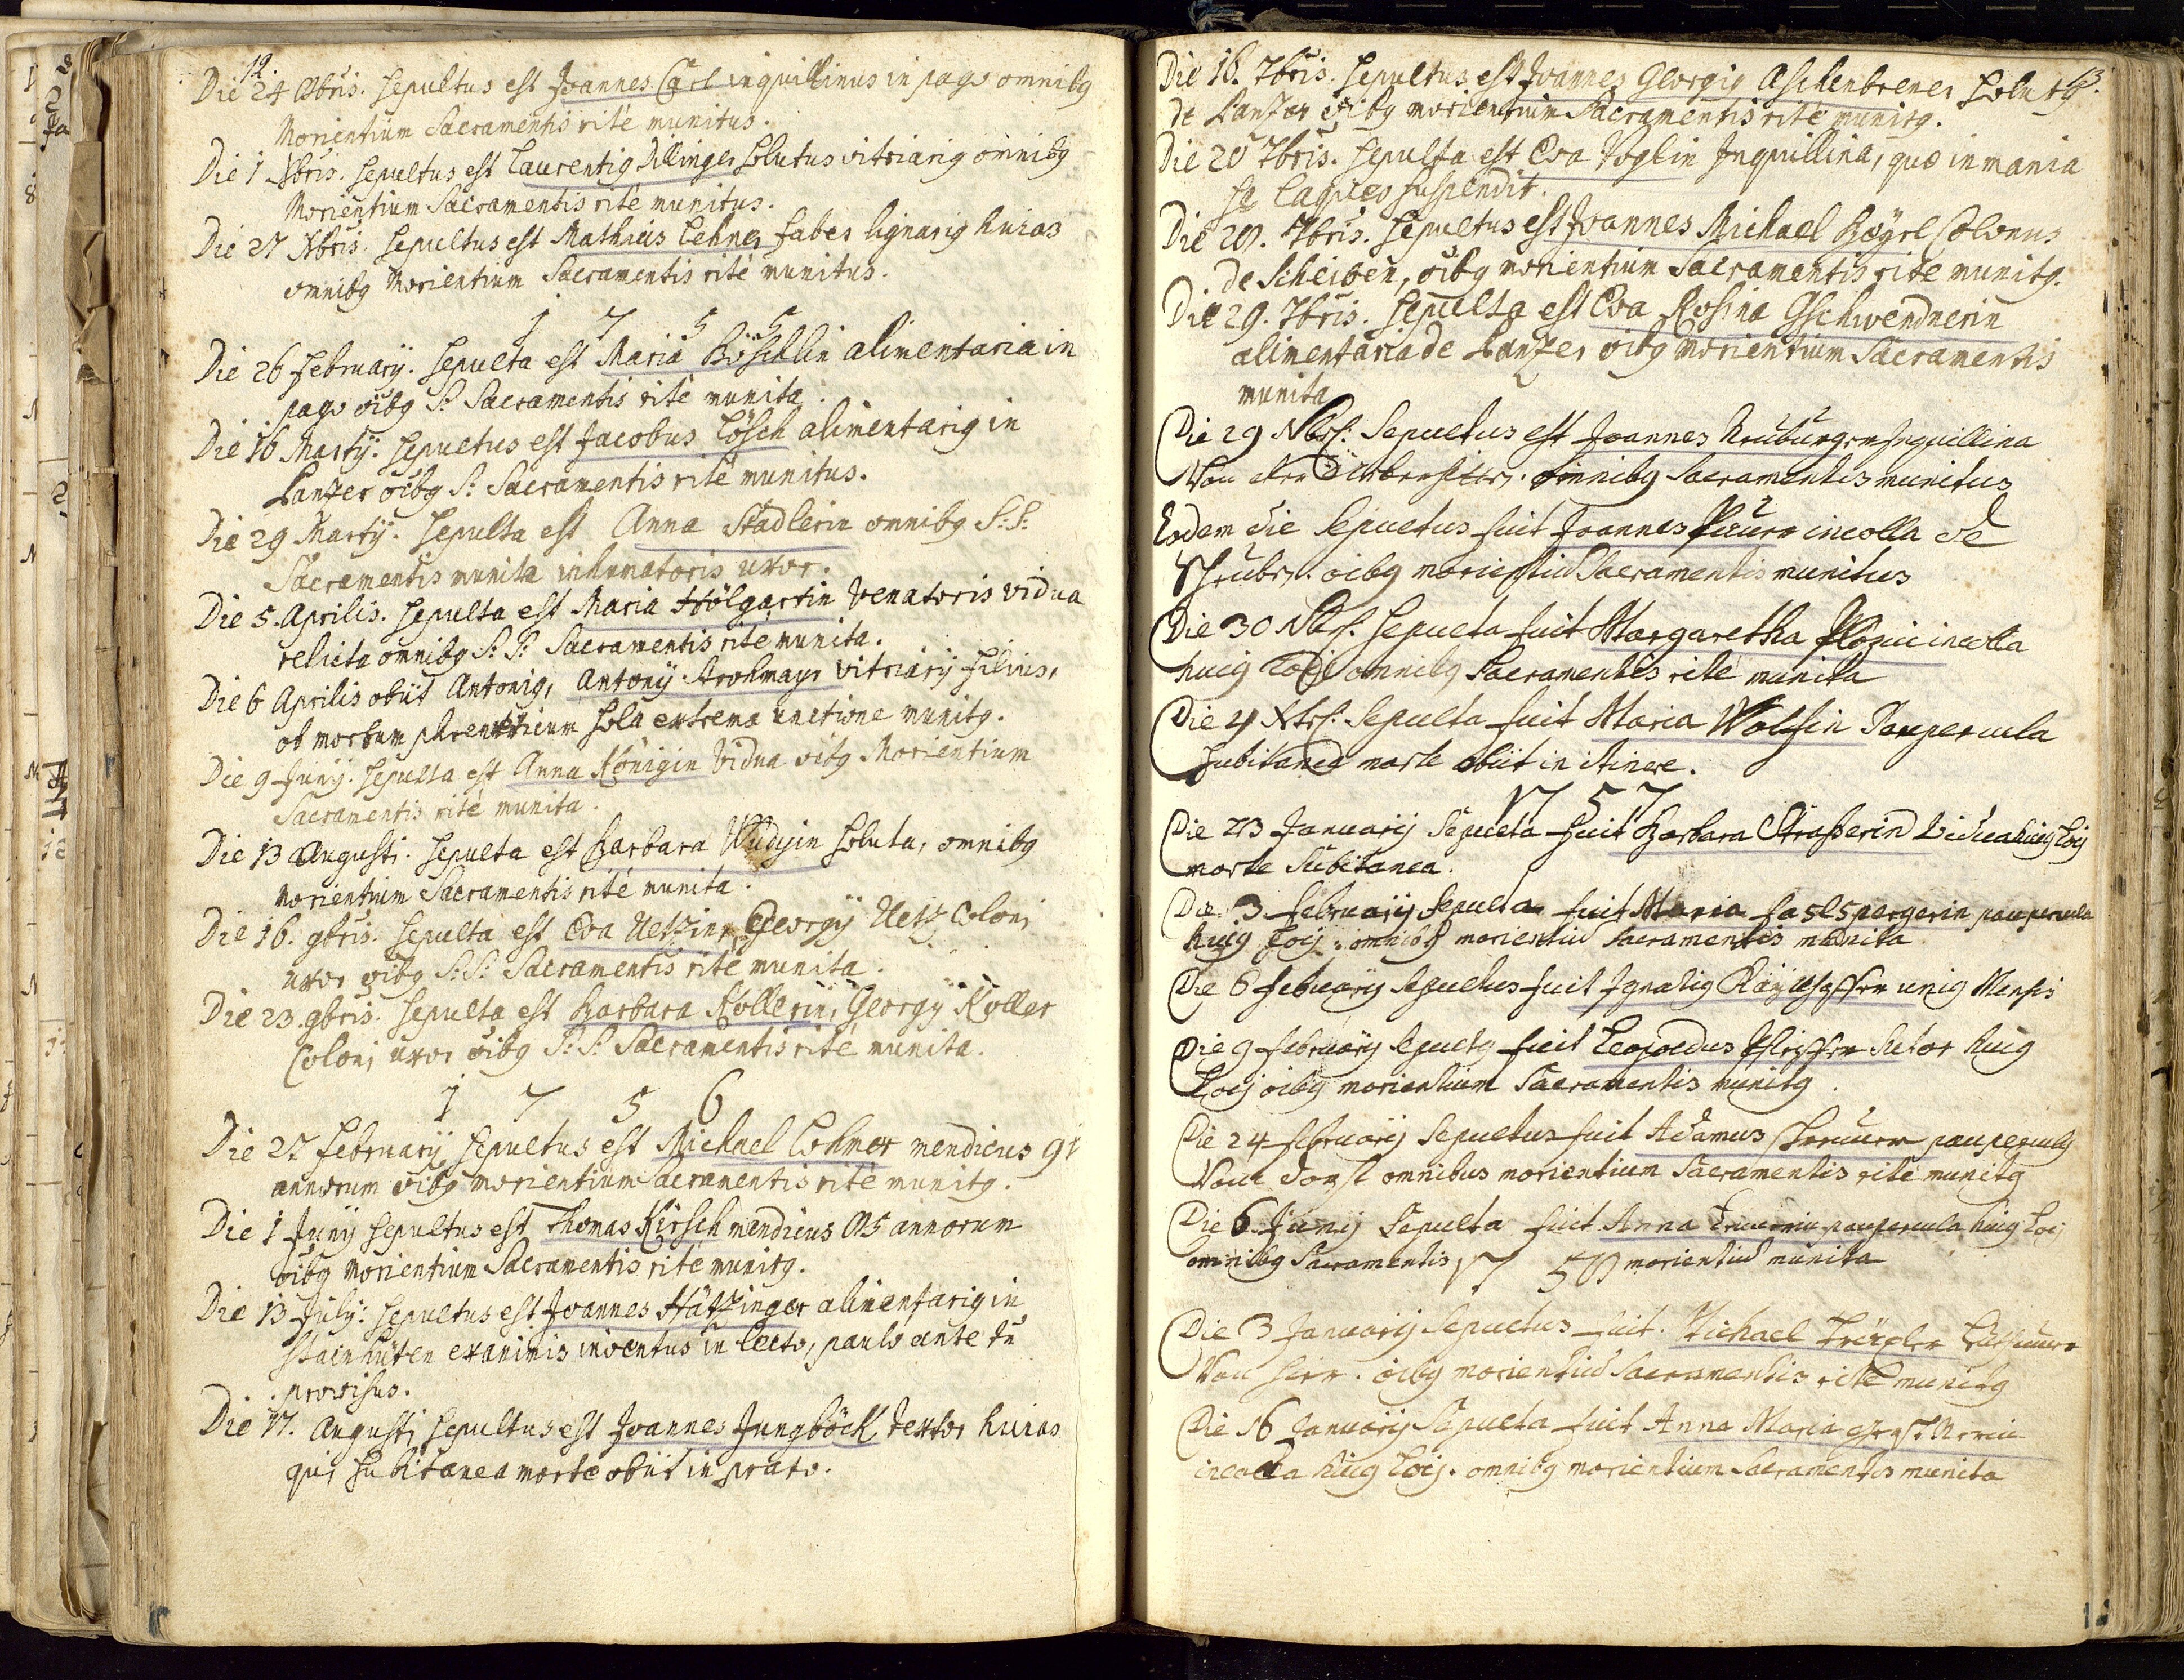 12.
Die 24 8bris. Sepultus est Joannes Carl inquillinus in pago omnibg
Morientium Sacramentis rite munitus.
Die 1 Xbris. Sepultus est Laurentig Dillinger Solutus vitriarig omnibg
Morientium Sacramentis rite munitus.
Die 27 Xbris. Sepultus est Mathias Lehner faber lignarig huias
omnibg Morientium Sacramentis rite munitus.
1 7 5 5
Die 26 February. Sepulta est Maria alimentaria in
pago oibg S: Sacramentis rite munita.
Die 16 Martij. Sepultus est Jacobus Lösch alimentarig in
Lanzer oibg S: Sacramentis rite munitus.
Die 29 Martij. Sepulta est Anna Stadlerin omnibg S:S:
Sacramentis munita inhumatoris uxor.
Die 5. Aprilis. Sepulta est Maria Hölgartin Venatoris vidua
relicta omnibg S: S: Sacramentis rite munita.
Die 6 Aprilis obiit Antonig, Antonij Strohmayr vitriarij filius,
ob morbum sola extrema unctione munitg.
Die 9 Junij. Sepulta est Anna Königin Vidua oibg Morientium
Sacramentis rite munita.
Die 13 Augusti. Sepulta est Barbara soluta, omnibg
morientium Sacramentis rite munita.
Die 16. 9bris. Sepulta est Eva Uetzin, Georgij Uetz Coloni
uxor oibg S:S: Sacramentis rite munita.
Die 23. 9bris. Sepulta est Barbara Kollerin, Georgij Koller
Coloni uxor oibg S:S: Sacramentis rite munita.
1 7 5 6
Die 27 February Sepultus est Michael Lohmer mendicus 91
annorum oibg morientium Sacramentis rite munitg.
Die 1 Juny Sepultus est Thomas Hirsch mendicus 85 annorum
oibg Morientium Sacramentis rite munitg.
Die 13 July: Sepultus est Joannes Hätzinger alimentarig in
Stainhüten exanimis inventus in lecto, paulo ante
provisus.
Die 17. Augusti Sepultus est Joannes Jungböck textor huias
qui subitanea morte obiit in prato.
13.
Die 18. 7bris. Sepultus est Joannes Georgig Aschenbrener Solutg
de Lanzer oibg morientium Sacramentis rite munitg.
Die 20 7bris. Sepulta est Eva Voglin Inquillina, quæ in mania
se laqueo suspendit.
Die 28. 7bris. Sepultus est Joannes Michael Colonus
de Scheiben, oibg morientium Sacramentis rite munitg.
Die 29. 7bris. Sepulta est Eva Rosina Gschwendnerin
alimentaria de Lanzer oibg Morientium Sacramentis
munita
Die 29 Sepultus est Joannes Inquillina
Von omnibg Sacramentis munitus
Eodem die Sepultus fuit Joannes incolla de
oibg morientiu Sacramentis munitus
Die 30 Sepulta fuit Margaretha incolla
huig Loci omnibg Sacramentis rite munita
Die 4 Sepulta fuit Maria Wolfin Paupercula
Subitanea morte obiit in itinere.
17 5 7
Die 23 January Sepulta fuit Barbara Straßerin Vidua huig Loci
morte Subitanea.
Die 3 February Sepulta fuit Maria paupercula
huig Loci omnibg morientiu Sacramentis munita
Die 6 February Sepultus fuit Ignatig unig Mensis
Die 9 February Sepultg fuit Leopoldus Pfeiffer Sutor huig
Loci oibg morientium Sacramentis munitg.
Die 24 February Sepultus fuit Adamus pauperculg
Von omnibus morientium Sacramentis rite munitg
Die 6 Junij Sepulta fuit Anna paupercula huig Loci
omnibg Sacramentis morientiu munita
17 58
Die 3 January Sepultus fuit. Michael
Von oibg morientiu Sacramentis rite munitg
Die 16 January Sepulta fuit Anna Maria
incolla huig Loci. omnibg morientium Sacramentis munita